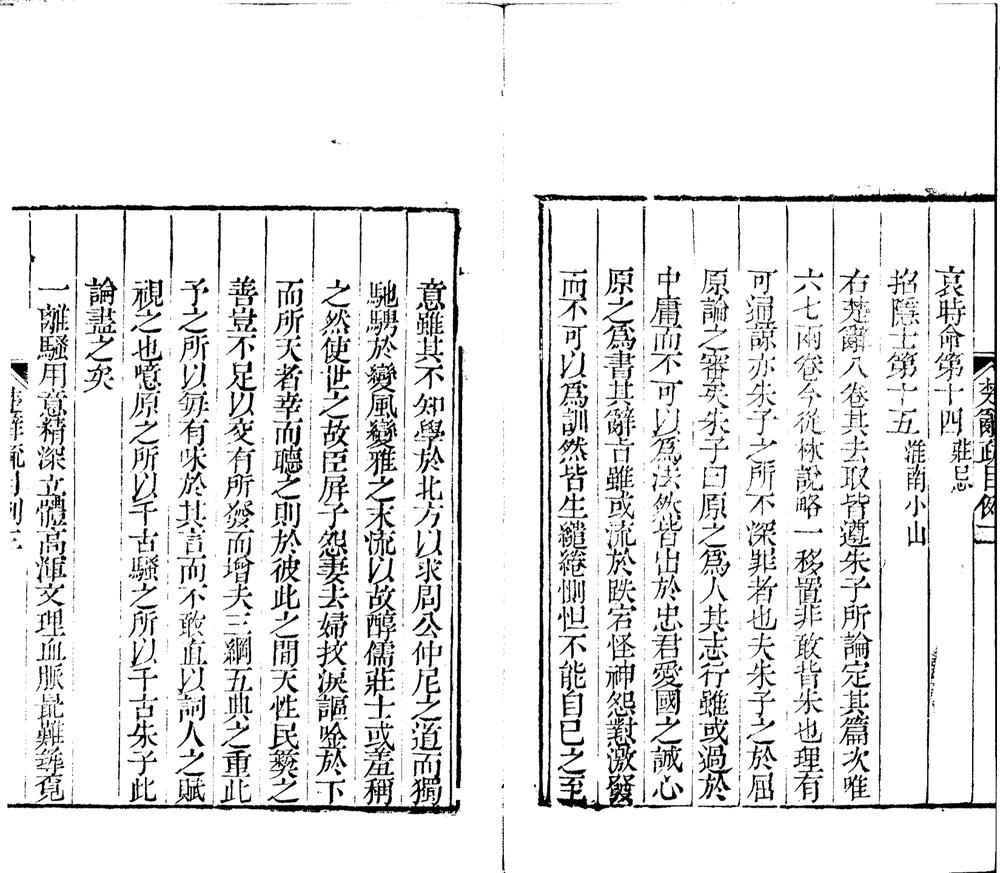 楚辭疏目例二
哀時命第十四 莊忌
招隱士第十五 淮南小山
右楚辭八卷其去取皆遵朱子所論定其篇次唯
六七兩卷今從林說略一移置非敢背朱也理有
可通諒亦朱子之所不深罪者也夫朱子之於屈
原論之審矣朱子曰原之爲人其志行雖或過於
中庸而不可以爲法然皆出於忠君愛國之誠心
原之爲書其辭旨雖或流於跌宕怪神怨懟激發
而不可以爲訓然皆生繾綣惻怛不能自已之至
意雖其不知學於北方以求周公仲尼之道而獨
馳騁於變風變雅之末流以故醇儒莊士或羞稱
之然使世之故臣屏子怨妻去婦抆淚謳唫於下
而所天者幸而聽之則於彼此之間天性民彜之
善豈不足以交有所發而增夫三綱五典之重此
予之所以每有味於其言而不敢直以詞人之賦
視之也噫原之所以千古騷之所以千古朱子此
論盡之矣
一離騷用意精深立體高渾文理血脈最難尋覓